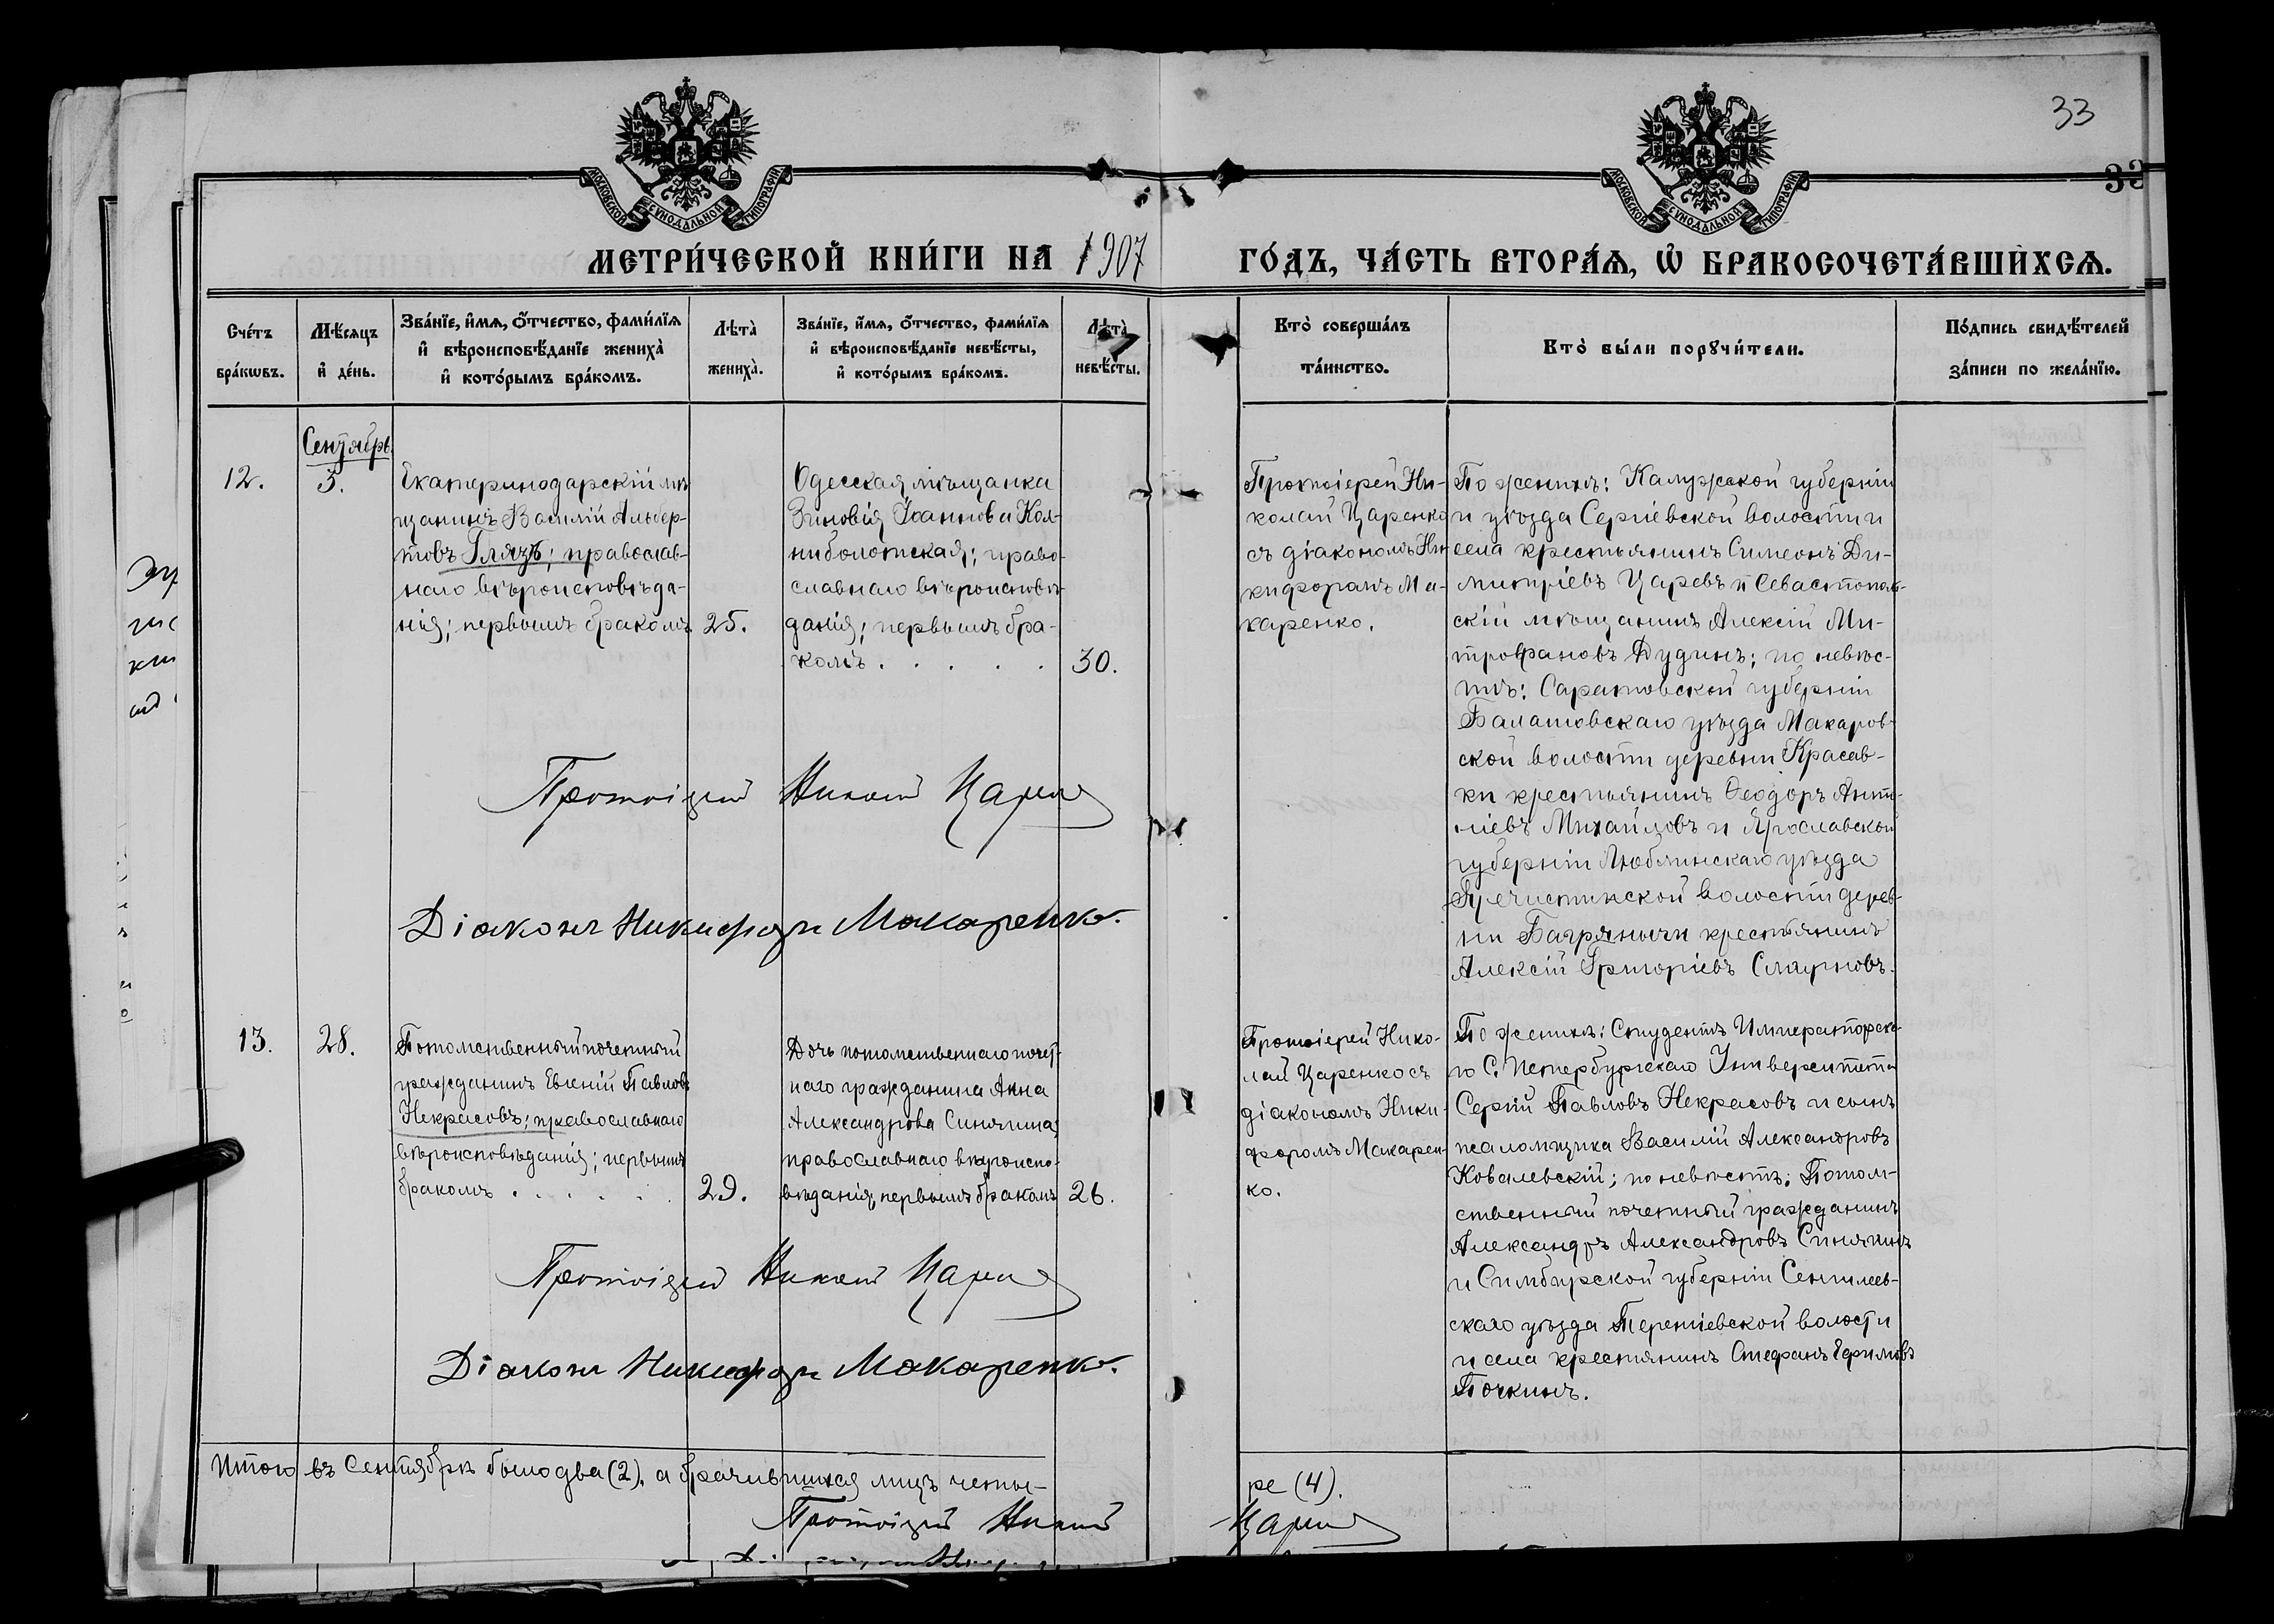 33
МОСКОВСКОЙ СѴНОДАЛЬНОЙ ТИПОГРАФІИ
МОСКОВСКОЙ СѴНОДАЛЬНОЙ ТИПОГРАФІИ
33
МЕТРИ́ЧЕСКОЙ КНИ́ГИ НА 1907 ГО́ДЪ, ЧА́СТЬ ВТОРА́Ѧ, Ѽ БРАКОСОЧЕТА́ВШИХСѦ.
Сче́тъ бра́кѡвъ.
Мѣ́сяцъ и҆ де́нь.
Зва́нїе, и҆́мѧ, ѻ҆́тчество, фами́лїѧ и҆ вѣроисповѣ́данїе жениха̀ и҆ кото́рымъ бра́комъ.
Лѣта̀ жениха̀.
Зва́нїе, и҆́мѧ, ѻ҆́тчество, фами́лїѧ и҆ вѣроисповѣ́данїе невѣ́сты, и҆ кото́рымъ бра́комъ.
Лѣта̀ невѣ́сты.
Кто̀ соверша́лъ та́инство.
Кто̀ бы́ли порꙋчи́тели.
По́дпись свидѣ́телей за́писи по жела́нїю.
Сентябрь.
12.
5.
Екатеринодарскій мѣ
щанинъ Василій Альбер-
товъ Глязъ; православ-
наго вѣроисповѣда-
нія; первымъ бракомъ
25.
Одесская мѣщанка
Зиновія Іоаннова Кол-
ниболотская; право-
славнаго вѣроисповѣ-
данія; первымъ бра-
комъ . . . . .
30.
Протоіерей Ни-
колай Царенко
съ діакономъ Ни-
кифоромъ Ма-
каренко.
По женихѣ: Калужской губерніи
и уѣзда Сергіевской волости и
села крестьянинъ Симеонъ Ди-
митріевъ Царевъ и Севастополь-
скій мѣщанинъ Алексій Ми-
трофановъ Дудинъ; по невѣс-
тѣ: Саратовской губерніи
Балашовскаго уѣзда Макаров-
ской волости деревни Красав-
ки крестьянинъ Ѳеодоръ
Михайловъ и Ярославской
губерніи Любимскаго уѣзда
Пречистинской волости дерев-
ни крестьянинъ
Алексій Григоріевъ Смирновъ.
Протоіерей Николай Царенко
Діаконъ Никифоръ Макаренко.
13.
28.
Потомственный почетный
гражданинъ Евгеній Павловъ
Некрасовъ; православнаго
вѣроисповѣданія; первымъ
бракомъ . . . . . .
29.
Дочь потомственнаго почет-
наго гражданина Анна
Александрова Синягина;
православнаго вѣроиспо-
вѣданія, первымъ бракомъ
26.
Протоіерей Нико-
лай Царенко съ
діакономъ Ники-
форомъ Макарен-
ко.
По женихѣ: Студентъ Императорска-
го С. Петербургскаго Университета
Сергій Павловъ Некрасовъ и сынъ
псаломщика Василій Александровъ
Ковалевскій; по невѣстѣ: Потом-
ственный почетный гражданинъ
Александръ Александровъ Синягинъ
и Симбирской губерніи Сенгилеев-
скаго уѣзда Тереньевской волости
и села крестьянинъ Стефанъ Ефимовъ
Точкинъ.
Протоіерей Николай Царенко
Діаконъ Никифоръ Макаренко.
Итого въ Сентябрѣ было два (2), а брачившихся лицъ четы-
ре (4).
Протоіерей Николай Царенко